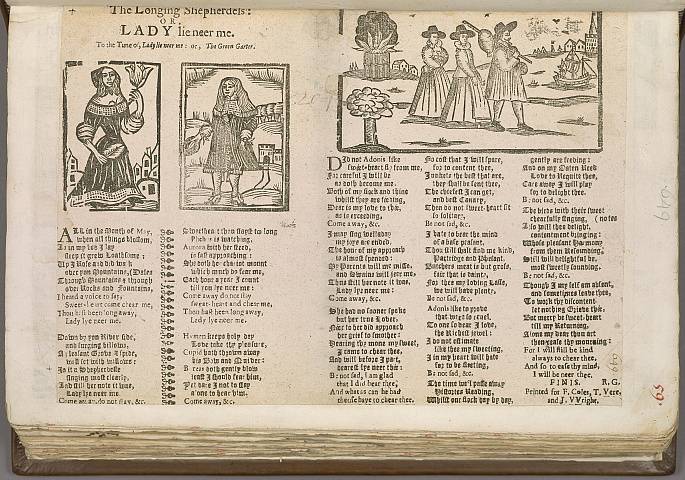 The Longing Shepherdess:
OR
LADY lie neer me.
To the Tune of, Lady lie neer me: or, The Green Garter.
ALL in the Month of May,
when all things blossom,
As in my bed I lay
sleep it grew Loathsome:
Up I Rose and did walk
over yon Mountains,
Through Mountains & through Dales
over Rocks and Fountains,
I heard a voice to say,
Sweet-heart come cheer me,
Thou hast been long away,
Lady lye neer me.
Down by yon River side,
and surging billows,
A pleasant Grove I spide,
well set with willows:
In it a Shepherdess
singing most clearly,
And still her note it was,
Lady lye neer me.
Come away, do not stay, &c.
Sweetheart thou stayst to long
Phebus is watching,
Aurora with her
is fast approaching:
which much do fear me,
Each hour a year I count
till you lye neer me:
Come away do not stay
sweet-heart and chear me,
Thou hast been long away,
Lady lye neer me.
Hymen keeps holy day
Love take thy pleasure,
Cupid hath thrown away
his Bow and Quiver:
lest I should fear him,
Yet dare I not to stay
alone to hear him.
Come away, &c.
Did not Adonis like
sweet-heart fly from me,
For careful I will be
as doth become me.
Both of my flock and thine
whilst they are feeding,
Dear is my love to thee,
as is exceeding,
Come away, &c.
The hour of my approach
is almost spented:
My Parents will me miss,
and Swains will jeer me:
Thus still her note it was,
Lady lye neer me:
Come away, &c.
She had no sooner spoke
but her true Lover,
Next to her did approach
her grief to smother:
Hearing thy moan my sweet,
I came to chear thee,
And will before I part,
dearest lye neer thee:
Be not sad, I am glad
that I did hear thee,
And what as can be had
these days to chear thee.
No cost that I will spare,
for to content thee,
Junkets the best that are,
they shall be sent thee,
The choicest I can get,
and best Canary,
Then do not sweet-heart sit
so solitary,
Be not sad, &c.
I hate to bear the mind
of a base pesant,
Thou shalt find me kind,
Partridge and Phesant.
Butchers meat is but gross,
fair that is dainty,
For thee my loving Lass,
we will have plenty,
Be not sad, &c.
Adonis like to prove
that were so cruel,
To one so dear I love,
the Richest jewel:
I do not estimate
like thee my sweeting,
I in my heart will hate
for to be fleeting,
Be not sad, &c.
The time we'l passe away
Histories Reading,
Whilst our flock day by day,
gently are feeding:
And on my Oaten Reed
Love to Requite thee,
Care away I will play
for to delight thee.
Be not sad, &c.
The birds with their sweet notes
chearfully singing,
Also will thee delight,
contentment bringing:
Whose pleasant Harmony
from them Resounding,
Still will delightful be,
most sweetly sounding.
Be not sad, &c.
Though I my self am absent,
and sometimes leave thee,
To work thy discontent
let nothing Grieve thee.
But merry be sweet-heart
till my Returning,
Alone my dear thou art
then cease thy mourning:
For I will still be kind
alwaies to chear thee.
And so to ease thy mind,
I will be neer thee.
FINIS. R.G.
Printed for F. Coles, T. Vere,
and J. VVright.